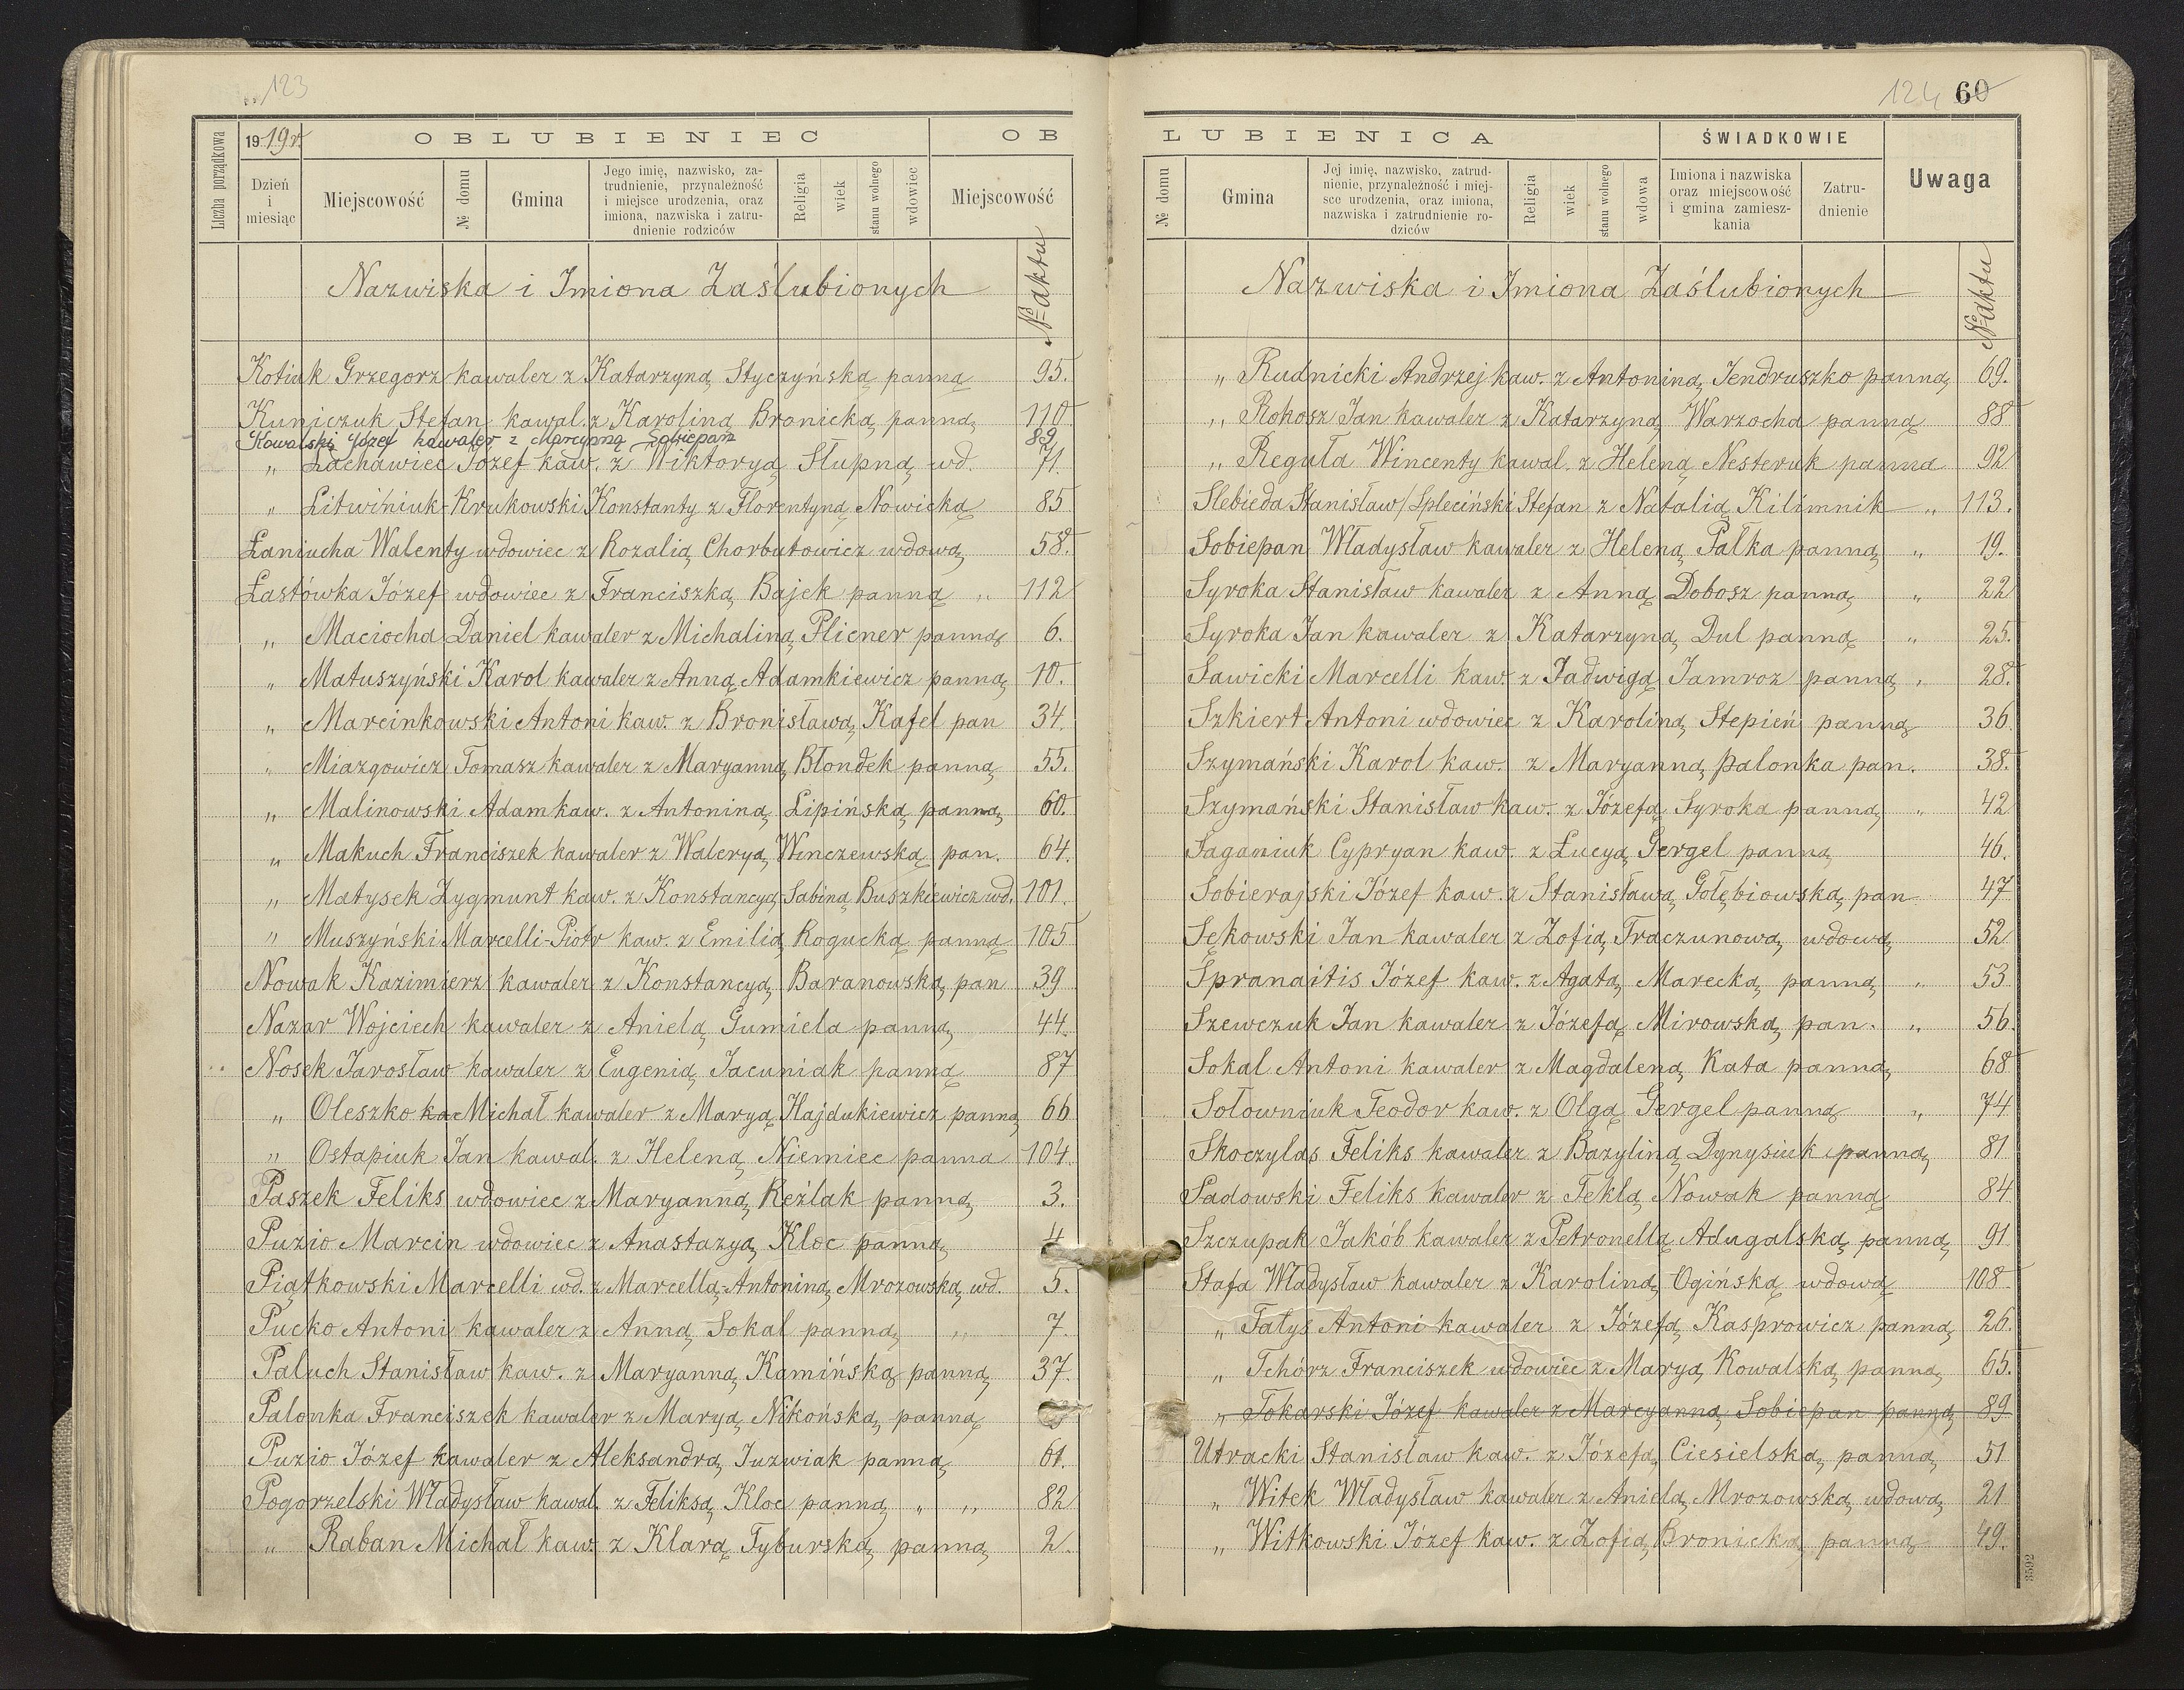 123
Liczba porządkowa
1919 r.
OBLUBIENIEC
OB
Dzień i miesiąc
Miejscowość
№ domu
Gmina
Jego imię, nazwisko, za-
trudnienie, przynależność
i miejsce urodzenia, oraz
imiona, nazwiska i zatru-
dnienie rodziców
Religia
wiek
stanu wolnego
wdowiec
Miejscowość
Nazwiska i Imiona Zaślubionych
№ aktu
Kotiuk Grzegorz kawaler z Katarzyną Styczyńską panną 95.
Kuniczuk Stefan kawal. z Karoliną Bronicką panną 110
Kowalski Józef kawaler z Marcyanną Sobiepan 89
" Lachawiec Józef kaw. z Wiktoryą Słupną wd. 71.
" Litwiniuk-Krukowski Konstanty z Florentyną Nowicką 85
Łaniucha Walenty wdowiec z Rozalią Chorbutowicz wdową 58.
Łastówka Józef wdowiec z Franciszką Bajek panną " 112
" Maciocha Daniel kawaler z Michaliną Plicner panną 6.
" Matuszyński Karol kawaler z Anną Adamkiewicz panną 10.
" Marcinkowski Antoni kaw. z Bronisławą Kafel pan 34.
" Miazgowicz Tomasz kawaler z Maryanną Błondek panną 55.
" Malinowski Adam kaw. z Antoniną Lipińską panną 60.
" Makuch Franciszek kawaler z Waleryą Winczewską pan. 64.
" Matysek Zygmunt kaw. z Konstancyą-Sabiną Buszkiewicz wd. 101.
" Muszyński Marcelli-Piotr kaw. z Emilią Rogucką panną 105
Nowak Kazimierz kawaler z Konstancyą Baranowską pan 39
Nazar Wojciech kawaler z Anielą Gumiela panną 44.
Nosek Jarosław kawaler z Eugenią Jacuniak panną 87
" Oleszko ka Michał kawaler z Maryą Hajdukiewicz panną 66
" Ostapiuk Jan kawal. z Heleną Niemiec panna 104.
Paszek Feliks wdowiec z Maryanną Reźlak panną 3.
Puzio Marcin wdowiec z Anastazyą Kloc panną 4
Piątkowski Marcelli wd. z Marcellą-Antoniną Mrozowską wd. 5.
Pucko Antoni kawaler z Anną Sokal panną " 7.
Paluch Stanisław kaw. z Maryanną Kamińską panną 37.
Palonka Franciszek kawaler z Maryą Nikońską panną
Puzio Józef kawaler z Aleksandrą Juzwiak panną 61.
Pogorzelski Władysław kawal. z Feliksą Kloc panną " " 82
" Raban Michał kaw. z Klarą Tyburską panną 2.
124 60
LUBIENICA
ŚWIADKOWIE
Uwaga
№ domu
Gmina
Jej imię, nazwisko, zatrud-
nienie, przynależność i miej-
sce urodzenia, oraz imiona,
nazwiska i zatrudnienie ro-
dziców
Religia
wiek
stanu wolnego
wdowa
Imiona i nazwiska
oraz miejscowość
i gmina zamiesz-
kania
Zatru-
dnienie
Nazwiska i Imiona Zaślubionych
№ aktu
" Rudnicki Andrzej kaw. z Antoniną Jendruszko panną 69.
" Rokosz Jan kawaler z Katarzyną Warzocha panną 88
" Reguła Wincenty kawal. z Heleną Nesteruk panna 92
Slebieda Stanisław/Spleciński Stefan z Natalią Kilimnik " 113.
Sobiepan Władysław kawaler z Heleną Pałka panną " 19.
Syroka Stanisław kawaler z Anną Dobosz panną " 22
Syroka Jan kawaler z Katarzyną Dul panną " 25.
Sawicki Marcelli kaw. z Jadwigą Jamroz panną " 28.
Szkiert Antoni wdowiec z Karoliną Stepień panną 36
Szymański Karol kaw. z Maryanną Palonka pan. 38.
Szymański Stanisław kaw. z Józefą Syroka panną " 42
Saganiuk Cypryan kaw. z Łucyą Gergel panną 46.
Sobierajski Józef kaw. z Stanisławą Gołębiowską pan 47
Sękowski Jan kawaler z Zofią Traczunową wdową 52
Spranaitis Józef kaw. z Agatą Marecką panną " 53
Szewczuk Jan kawaler z Józefą Mirowską pan. " 56.
Sokal Antoni kawaler z Magdaleną Kata panną 68
Sołowniuk Teodor kaw. z Olgą Gergel panną " 74
Skoczylas Feliks kawaler z Bazyliną Dynysiuk panną 81
Sadowski Feliks kawaler z Teklą Nowak panną 84
Szczupak Jakób kawaler z Petronellą Adugalską panną 91
Stafa Władysław kawaler z Karoliną Ogińską wdową 108
" Tałys Antoni kawaler z Józefą Kasprowicz panną 26.
" Tchórz Franciszek wdowiec z Maryą Kowalską panną 65.
" Tokarski Józef kawaler z Marcyanną Sobiepan panną 89
Utracki Stanisław kaw. z Józefą Ciesielską panną 51
" Witek Władysław kawaler z Anielą Mrozowską wdową 21
" Witkowski Józef kaw. z Zofią Bronicką panną 49.
3592